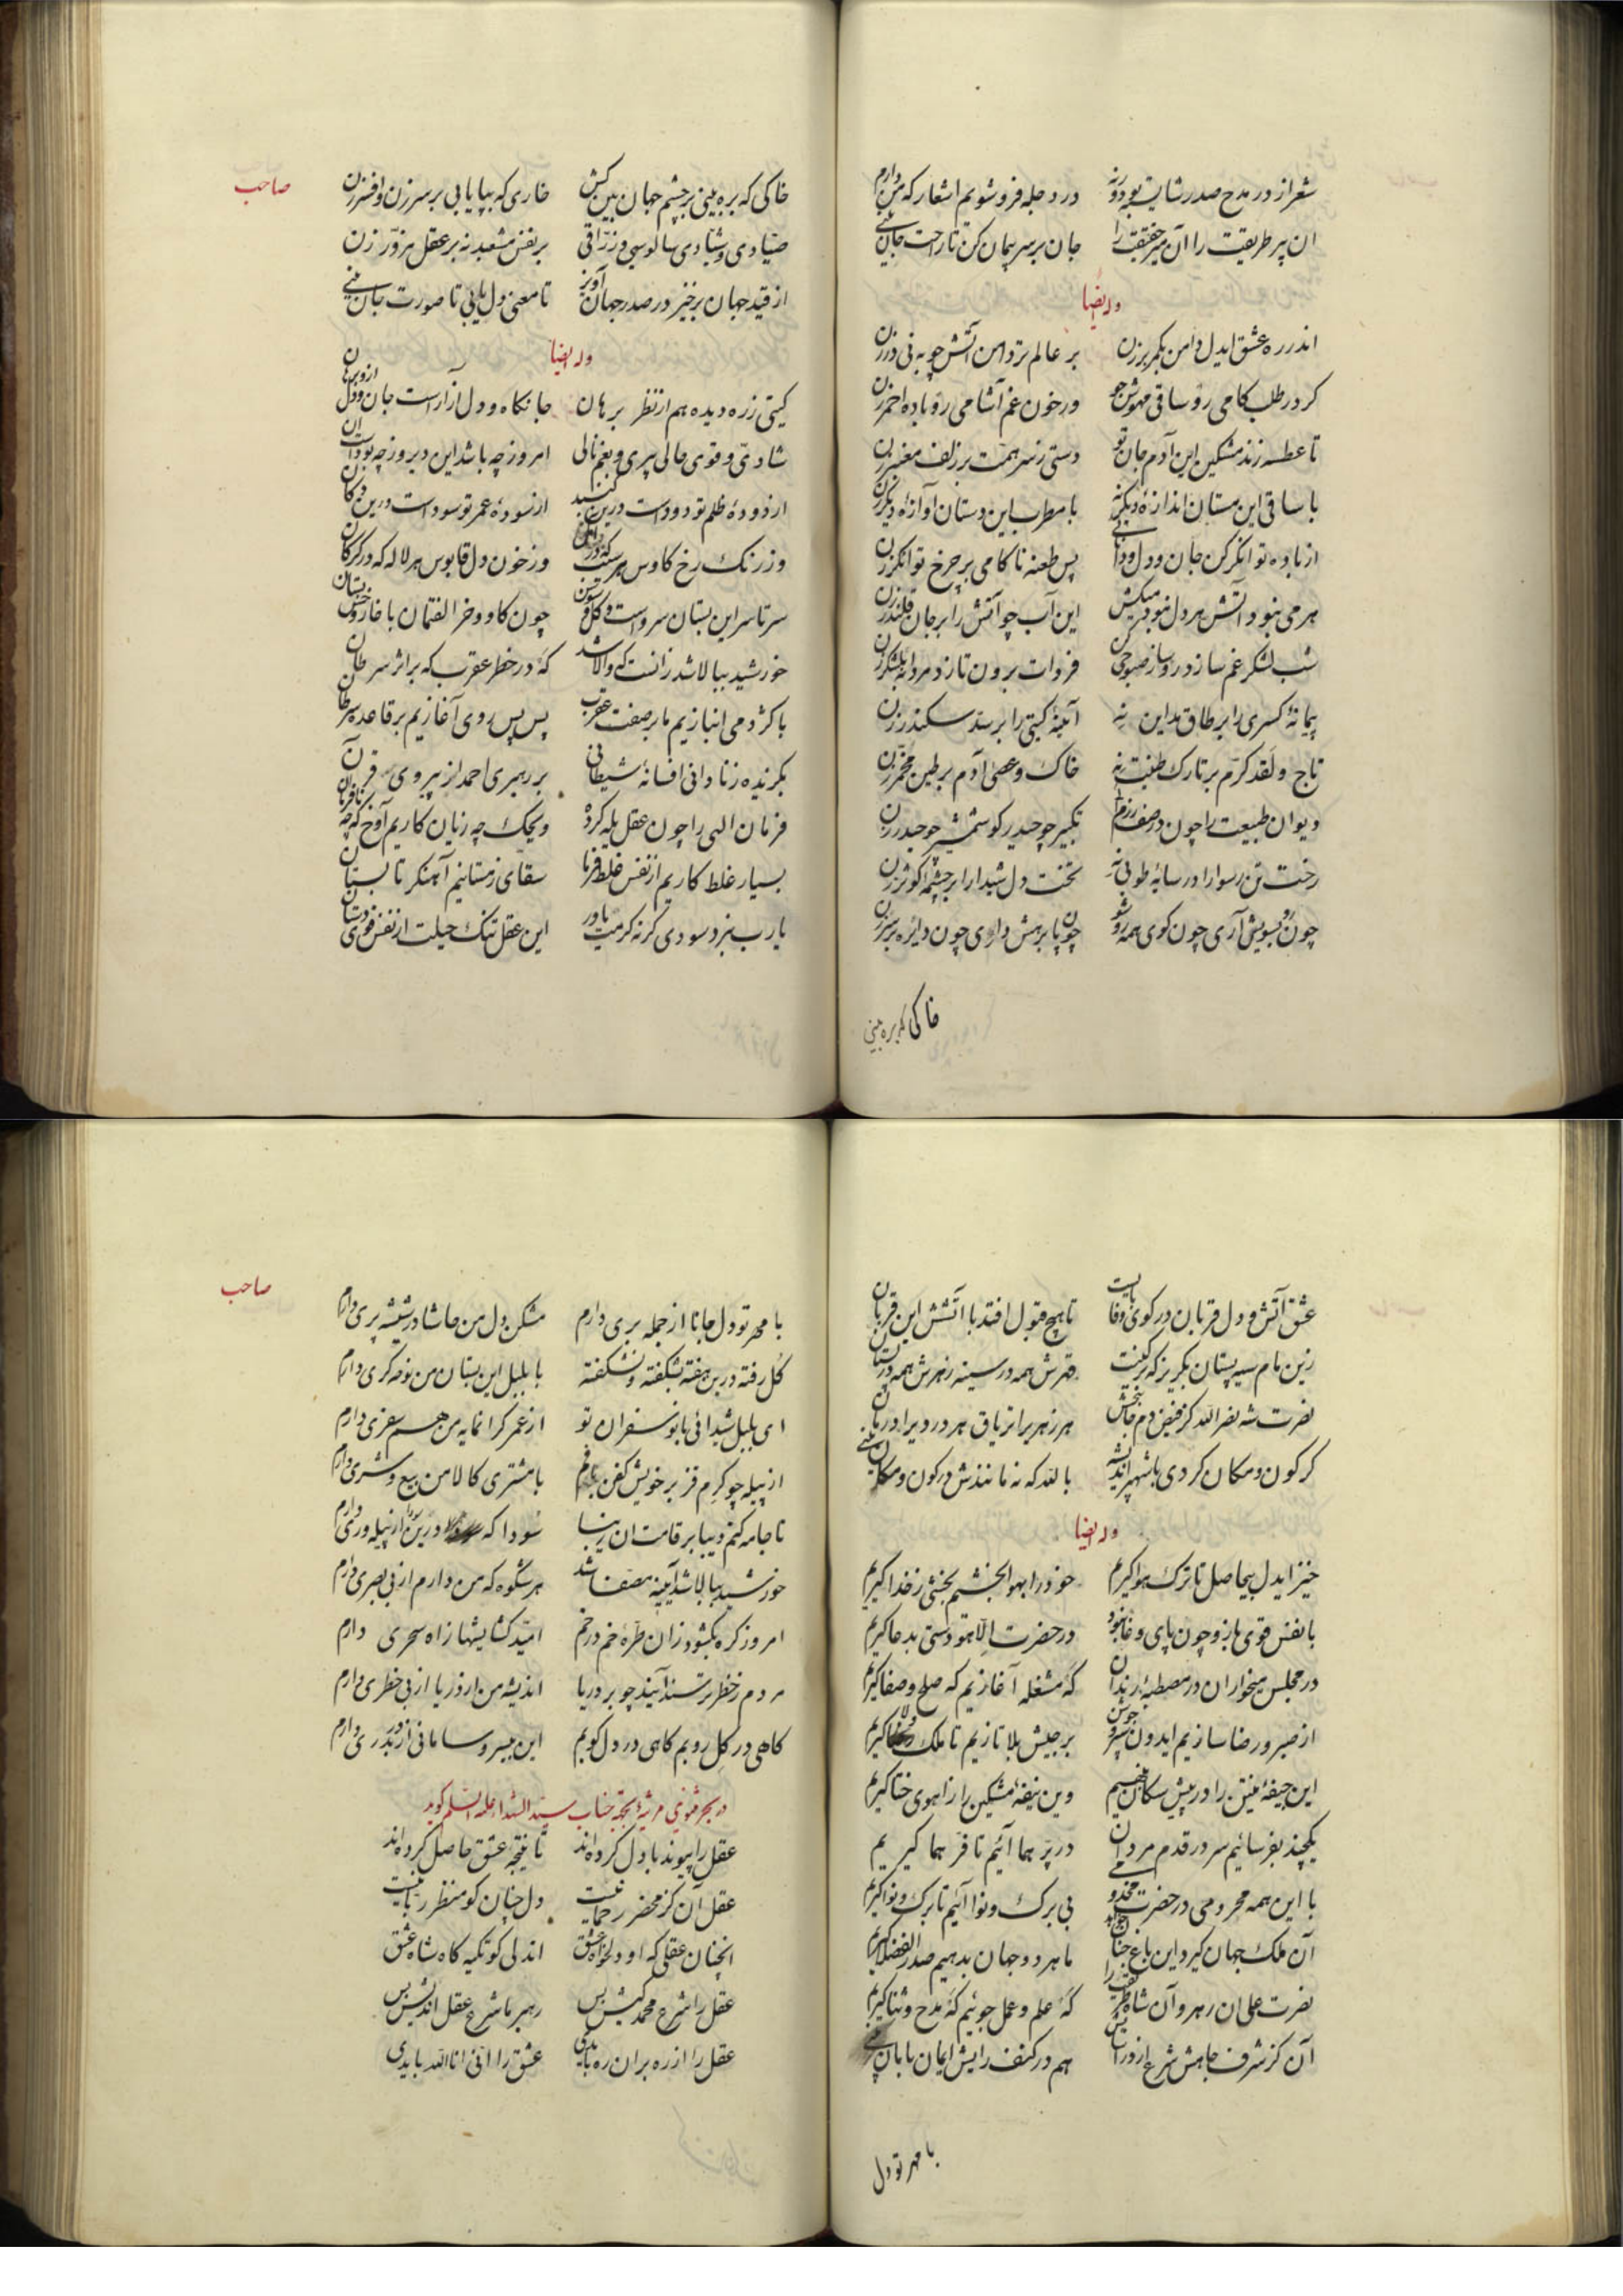 شعر از در مدح صدر شایت بود ورنه در دجله فرو شویم اشعار که من دارم
ان پیر طریقت را آن میر حقیقت را جان بر سر پیمان کن تا راحت جان بینی
وله ایضا
اندر ره عشق ایدل دامن بکمر برزن بر عالم تر دامن آتش چو به نی درزن
کر در طلب کامی رو ساقی مهوش جو ور خون غم آشامی رو باده احمر زن
تا عطسه زند مشکین این آدم جان تو دستی ز سر همت بر زلف معنبر زن
با ساقی این مستان اندازه دیکر نه با مطرب این دستان آوازه دیکر زن
از باده توانکر کن جان و دل و دانی پس طعنه ناکامی بر چرخ توانکر زن
هر می نبود آتش هر دل نبود میکش این آب چو آتش را بر جان قلندر زن
شب لشکر غم سازد رو ساز صبوحی کن فردات برون تازد مردانه بلشکر زن
پیمانه کسری را بر طاق مداین نه آئینه کیتی را بر سد سکندر زن
تاج و لقد کرّم بر تارک طینت نه خاک و عصی آدم بر طین مخمر زن
دیوان طبیعت را چون در صف رزم تکبیر چو حیدر کو شمشیر چو حیدر زن
رخت تن رسوا را در سایه طوبی نه تخت دل شیدا را بر چشمه کوثر زن
چون رو بسویش آری چون کوی همه رو شو چون پا برهش داری چون دایره بر سر زن
خاکی که بره بینی
صاحب
خاکی که بره بینی بر چشم جهان بین کش خاری که بپا یابی بر سر زن و افسر زن
صیّادی و شیّادی سالوسی و زرّاقی بر نفس مشعبد نه بر عقل مزوّر زن
از قید جهان برخیز در صدر جهان آویز تا معنی دل یابی تا صورت جان بینی
وله ایضا
کیتی زره دیده هم از نظر برهان جانکاه و دل آزار است جان و دل ازو برهان
شادیّ و قوی حالی پیری و بغم نالی امروز چه باشد این دیروز چه بود است آن
از دوده ظلم تو دود است درین کنبد از سوده عمر تو سود است درین دکان
وز رنک رخ کاوس هر سبزه که در وز خون دل قابوس هر لاله که در کرکان
سر تا سر این بستان سرو است و کل و سوسن چون کاو و خر الفتمان با خار و خس بستان
خورشید ببالا شد زانست که والا شد که در خطر عقرب که بر اثر سرطان
با کژدمی انبازیم ما بر صفت عقرب پس پس روی آغازیم بر قاعده سرطان
بکزیده ز نادانی افسانه شیطانی بر رهبری احمد از پیروی قرآن
فرمان الهی را چون عقل یله کرده ویحک چه زیان کاریم آوخ که چه نافرمان
بسیار غلط کاریم از نفس غلط فرما سقای زمستانیم آهنکر تابستان
یا رب نبرد سودی کر نه کرمت یاور این عقل تنک حیلت از نفس قوی دستان
عشق آتش و دل قربان در کوی وفا بایست تا هیچ قبول افتد با آتشش این قربان
زین مام سیه پستان بکریز که کینت قهرش همه در سینه زهرش همه در پستان
نصرت شه نصر الله کز فیض دم جان بخشش هر زهر برا تریاق هر درد برا درمان
کر کون و مکان کردی با شهپر اندیشه بالله که نه مانندش در کون و مکان بینی
وله ایضا
خیز ایدل بیحاصل تا ترک هوا کیریم خود را بهوا بخشیم بخشی ز خدا کیریم
با نفس قوی بازو چون پای وغا نبود در حضرت الاهو دستی بدعا کیریم
در مجلس میخواران در مصطبه رندان که مشغله آغازیم که صلح و صفا کیریم
از صبر و رضا سازیم ایدون سپر و جوشن بر جیش بلا تازیم تا ملک ولا کیریم
این جیفه منتن را در پیش سکان بنهیم وین نیفه مشکین را ز اهوی ختا کیریم
یکچند بفرسائیم سر در قدم مردان در پر هما آئیم تا فرّ هما کیریم
با این همه محرومی در حضرت مخدومی بی برک و نوا آئیم تا برک و نوا کیریم
آن ملک جهان کیرد این باغ جنان ما هر دو جهان بدهیم صدر الفضلا کیریم
نصرت علی ان رهرو آن شاه طریقت را که علم و عمل جوئیم که مدح و ثنا کیریم
آن کز شرف جاهش شرع از در آرایش هم در کنف رایش ایمان بامان بینی
با مهر تو دل
صاحب
با مهر تو دل جانا از جمله بری دارم مشکن دل من حاشا در شیشه پری دارم
کل رفته درین هفته بشکفته و نشکفته با بلبل این بستان من نوحه کری دارم
ای بلبل شیدائی با نو سفران تو از عمر کرانمایه من هم سفری دارم
از پیله چو کرم قز بر خویش کفن بافم با مشتری کالا من بیع و شری دارم
تا جامه کنم دیبا بر قامت ان زیبا سودا که درین سودا از پیله وری دارم
خورشید ببالا شد آیینه مصفا شد هر شکوه که من دارم از بی بصری دارم
امروز کره بکشود زان طره خم در خم امید کشایشها ز اه سحری دارم
مردم ز خطر ترسند آیند چو بر دریا اندیشه من از دریا از بی خطری دارم
کاهی در کل رویم کاهی در دل کویم این بی سر و سامانی از دربدری دارم
در بحر مثنوی مرثیه بجهة جناب سید الشهدا علیه السلم کوید
عقل را پیوند با دل کرده‌اند تا نتیجه عشق حاصل کرده‌اند
عقل آن کز محضر رحمانیست دل چنان کو منظر ربانیست
انچنان عقلی که او دلخواه عشق اندلی کو تکیه کاه شاه عشق
عقل را شرع محمد کیش بس رهبر ما شرع عقل اندیش بس
عقل را از ره بران ره بایدی عشق را انّی انا الله بایدی